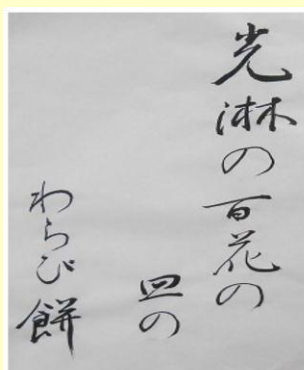 光淋の百花の
皿の
わらび餅